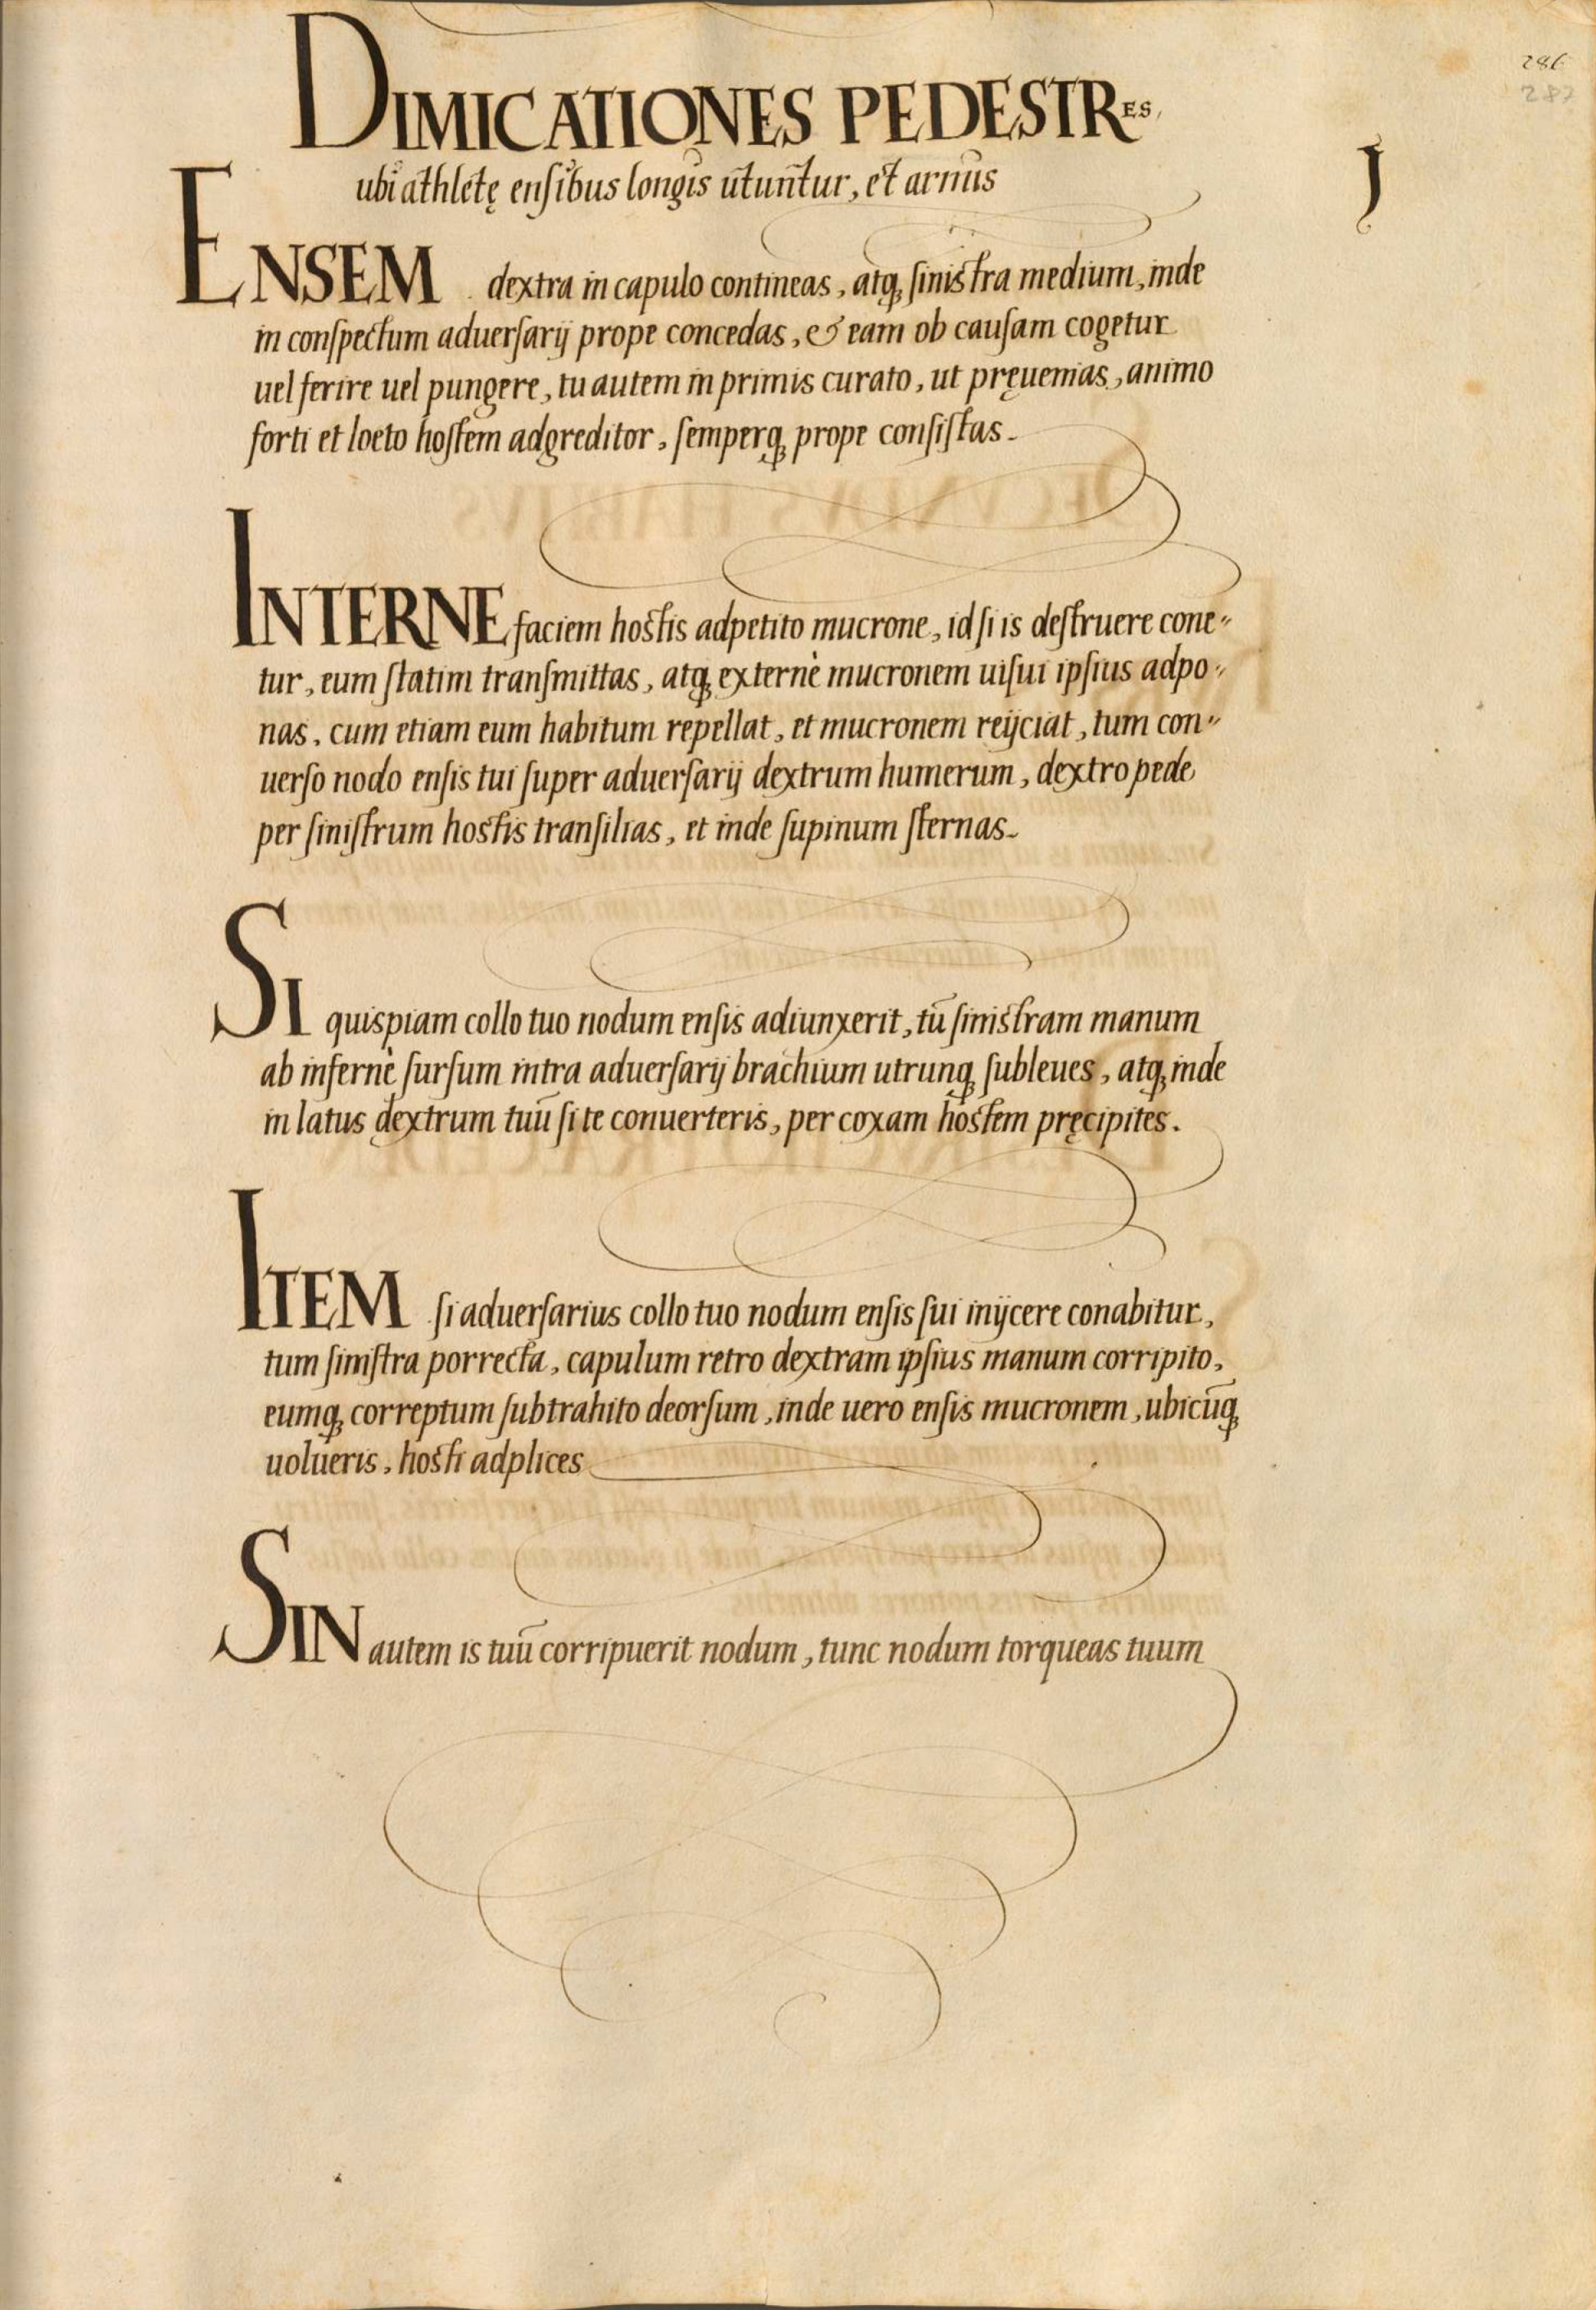 286
287
DIMICATIONES PEDESTRES,
ubi athletę ensibus longis utuntur, et armis
J
ENSEM dextra in capulo contineas, atq; siniſtra medium, inde
in conſpectum aduerſarij prope concedas, & eam ob cauſam cogetur
uel ferire uel pungere, tu autem in primis curato, ut pręuenias, animo
forti et loeto hoſtem adgreditor, ſemperq; prope conſiſtas.
INTERNE faciem hoſtis adpetito mucrone, id ſi is deſtruere cone⸗
tur, eum ſtatim tranſmittas, atq; externè mucronem uiſui ipſius adpo⸗
nas, cum etiam eum habitum repellat, et mucronem reijciat, tum con⸗
uerſo nodo enſis tui ſuper aduerſarij dextrum humerum, dextro pede
per ſiniſtrum hoſtis tranſilias, et inde ſupinum ſternas.
SI quispiam collo tuo nodum enſis adiunxerit, tū ſiniſtram manum
ab infernè ſurſum intra aduerſarij brachium utrunq; ſubleues, atq; inde
in latus dextrum tuū ſi te conuerteris, per coxam hoſtem pręcipites.
ITEM ſi aduerſarius collo tuo nodum enſis ſui inijcere conabitur,
tum ſiniſtra porrecta, capulum retro dextram ipſius manum corripito,
eumq; correptum ſubtrahito deorſum, inde uero enſis mucronem, ubicūq;
uolueris, hoſti adplices
SIN autem is tuū corripuerit nodum, tunc nodum torqueas tuum